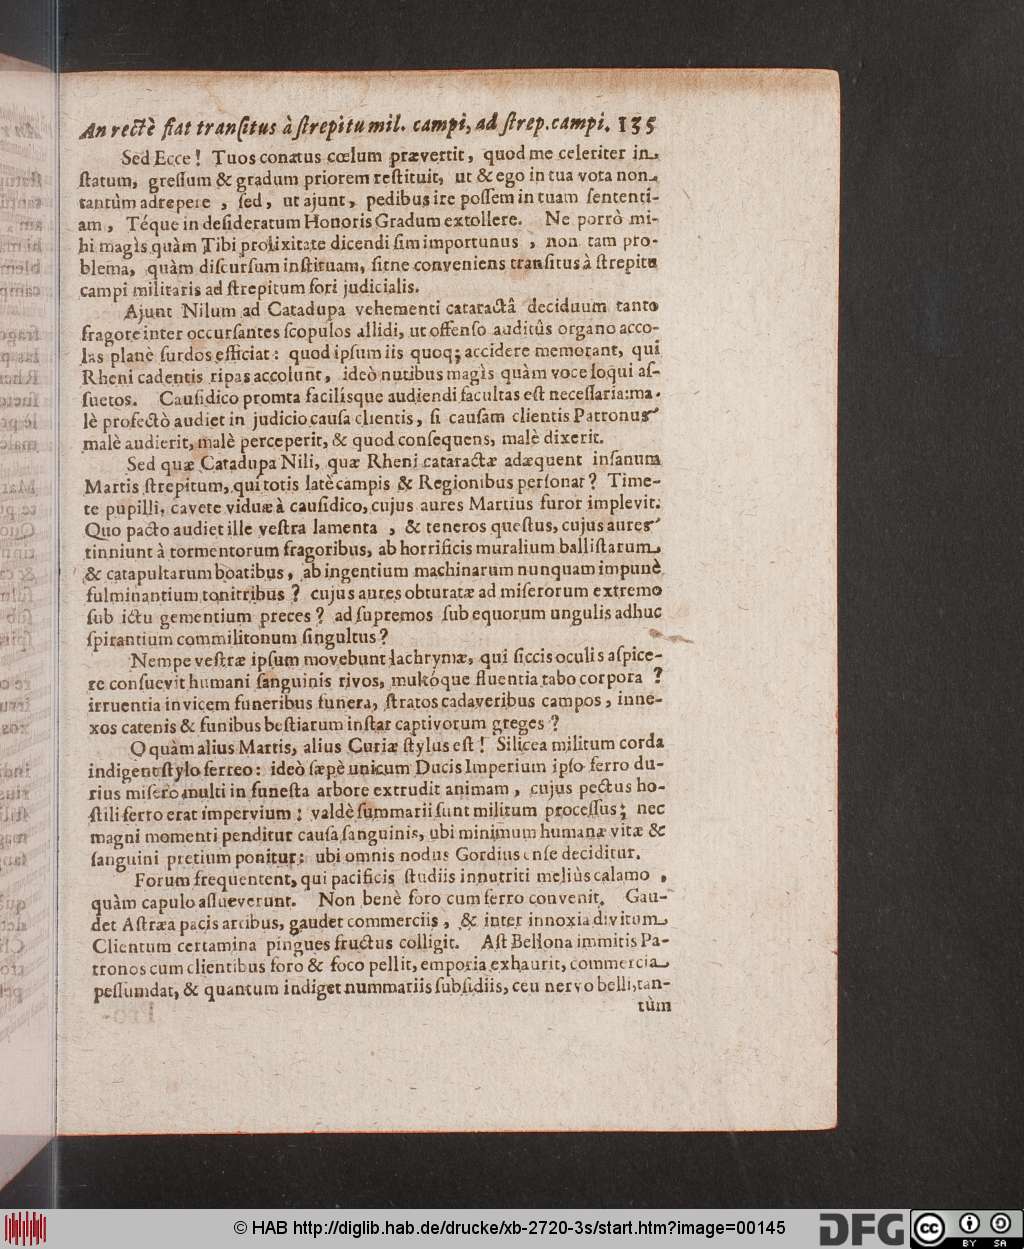 An rectè fiat tranſitus à ſtrepitu mil. campi, ad ſtrep. campi. 135
Sed Ecce! Tuos conatus cœlum prævertit, quod me celeriter in
ſtatum, greſſum & gradum priorem reſtituit, ut & ego in tua vota non
tantùm adrepere, ſed, ut ajunt, pedibus ire poſſem in tuam ſententi-
am, Téque in deſideratum Honoris Gradum extollere. Ne porrò mi-
hi magìs quàm Tibi prolixitate dicendi ſim importunus, non tam pro-
blema, quàm diſcurſum inſtituam, ſitne conveniens tranſitus à ſtrepitu
campi militaris ad ſtrepitum fori judicialis.
Ajunt Nilum ad Catadupa vehementi cataractâ deciduum tanto
fragore inter occurſantes ſcopulos allidi, ut offenſo auditûs organo acco-
las planè ſurdos efficiat: quod ipſum iis quoq; accidere memorant, qui
Rheni cadentis ripas accolunt, ideò nutibus magìs quàm voce loqui aſ-
ſuetos. Cauſidico promta facilisque audiendi facultas eſt neceſſaria: ma-
lè profectò audiet in judicio cauſa clientis, ſi cauſam clientis Patronus
malè audierit, malè perceperit, & quod conſequens, malè dixerit.
Sed quæ Catadupa Nili, quæ Rheni cataractæ adæquent inſanum
Martis ſtrepitum, qui totis latè campis & Regionibus perſonat? Time-
te pupilli, cavete viduæ à cauſidico, cujus aures Martius furor implevit:
Quo pacto audiet ille veſtra lamenta, & teneros queſtus, cujus aures
tinniunt à tormentorum fragoribus, ab horrificis muralium balliſtarum
& catapultarum boatibus, ab ingentium machinarum nunquam impunè
fulminantium tonitribus? cujus aures obturatæ ad miſerorum extremo
ſub ictu gementium preces? ad ſupremos ſub equorum ungulis adhuc
ſpirantium commilitonum ſingultus?
Nempe veſtræ ipſum movebunt lachrymæ, qui ſiccis oculis aſpice-
re conſuevit humani ſanguinis rivos, multóque fluentia tabo corpora?
irruentia invicem funeribus funera, ſtratos cadaveribus campos, inne-
xos catenis & funibus beſtiarum inſtar captivorum greges?
O quàm alius Martis, alius Curiæ ſtylus eſt! Silicea militum corda
indigent ſtylo ferreo: ideò ſæpè unicum Ducis Imperium ipſo ferro du-
rius miſero multi in funeſta arbore extrudit animam, cujus pectus ho-
ſtili ferro erat impervium: valdè ſummarii ſunt militum proceſſus; nec
magni momenti penditur cauſa ſanguinis, ubi minimum humanæ vitæ &
ſanguini pretium ponitur: ubi omnis nodus Gordius enſe deciditur.
Forum frequentent, qui pacificis ſtudiis innutriti meliùs calamo,
quàm capulo aſſueverunt. Non benè foro cum ferro convenit. Gau-
det Aſtræa pacis artibus, gaudet commerciis, & inter innoxia divitum
Clientum certamina pingues fructus colligit. Aſt Bellona immitis Pa-
tronos cum clientibus foro & foco pellit, emporia exhaurit, commercia
peſſumdat, & quantum indiget nummariis ſubſidiis, ceu nervo belli, tan-
tùm
© HAB http://diglib.hab.de/drucke/xb-2720-3s/start.htm?image=00145
DFG
cc BY SA